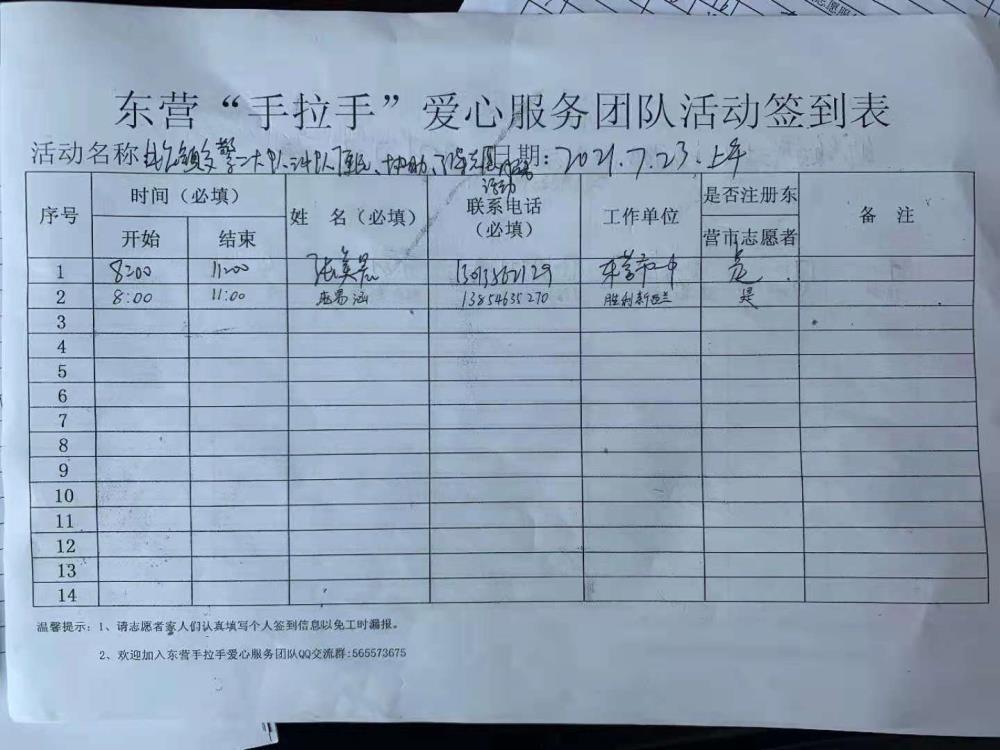 东营“手拉手”爱心服务团队活动签到表
活动名称 日期：2021.7.23.上午
活动
序号 时间（必填） 姓 名（必填） 联系电话（必填） 工作单位 是否注册东营市志愿者 备 注
开始 结束
1 8:00 11:00 东营市二中 是
2 8:00 11:00 13854635270 是
3
4
5
6
7
8
9
10
11
12
13
14
温馨提示：1、请志愿者家人们认真填写个人签到信息以免工时漏报。
2、欢迎加入东营手拉手爱心服务团队QQ交流群:565573675